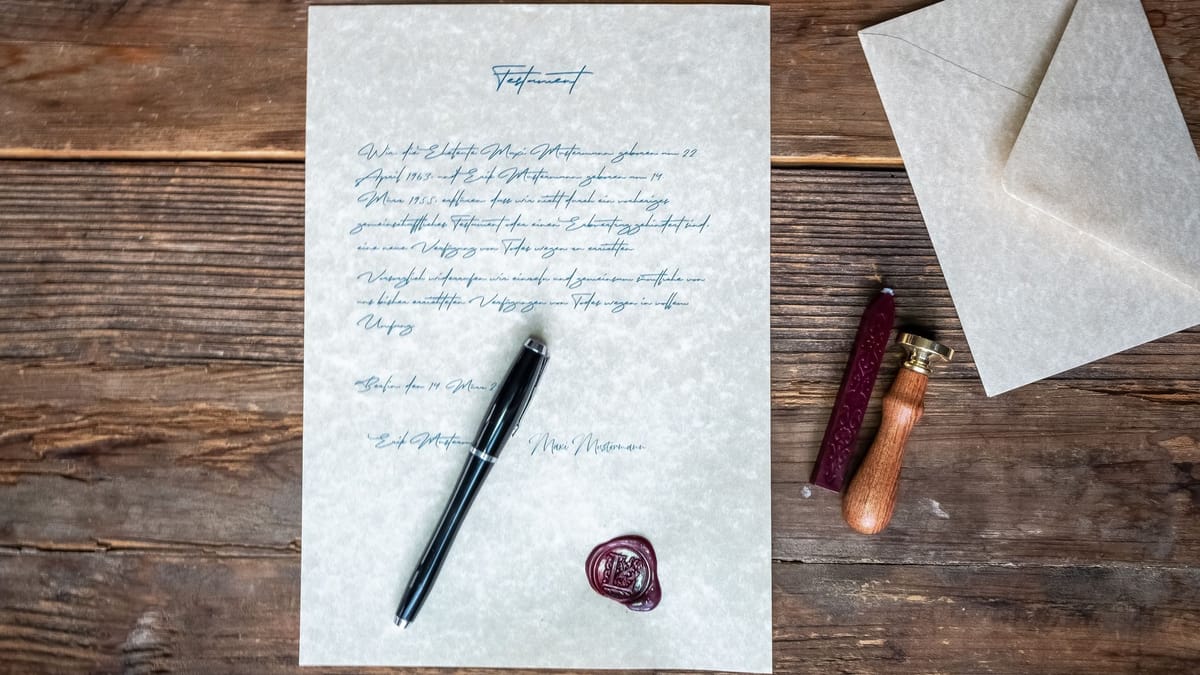 Testament
Wir, die Eheleute Maxi Mustermann geboren am 22
April 1963, und Erik Mustermann geboren am 14
März 1955, erklären, dass wir nicht durch ein vorheriges
gemeinschaftliches Testament oder einen Erbvertrag gehindert sind,
eine neue Verfügung von Todes wegen zu errichten
Vorsorglich widerrufen wir einzeln und gemeinsam sämtliche von
uns bisher errichteten Verfügungen von Todes wegen in vollem
Umfang
Berlin, den 14 März 2
Erik Musterm
Maxi Mustermann